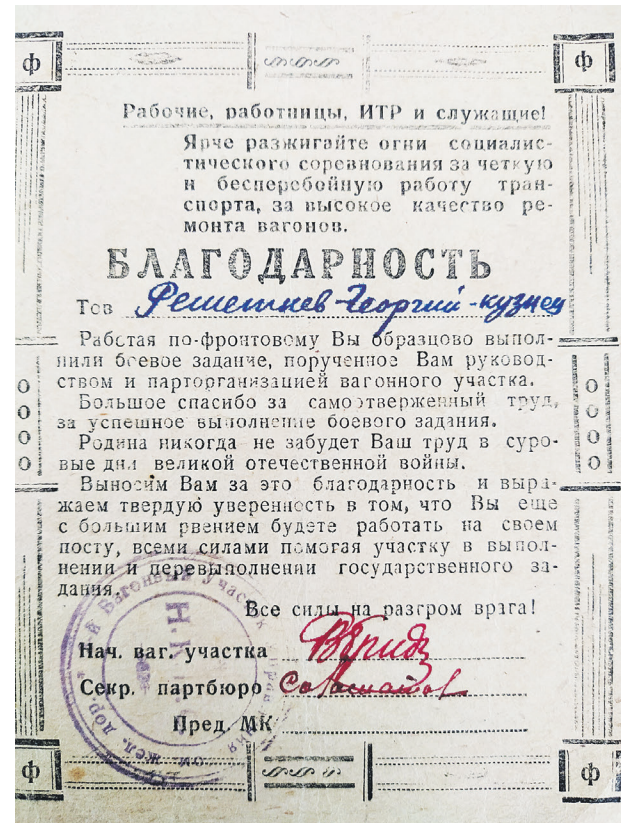 ф ф
Рабочие, работницы, ИТР и служащие!
Ярче разжигайте огни социалис-
тического соревнования за четкую
и бесперебойную работу тран-
спорта, за высокое качество ре-
монта вагонов.
БЛАГОДАРНОСТЬ
Тов Решетнев Георгий - кузнец
Работая по-фронтовому Вы образцово выпол-
нили боевое задание, порученное Вам руковод-
ством и парторганизацией вагонного участка.
Большое спасибо за самоотверженный труд,
за успешное выполнение боевого задания.
Родина никогда не забудет Ваш труд в суро-
вые дни великой отечественной войны.
Выносим Вам за это благодарность и выра-
жаем твердую уверенность в том, что Вы еще
с большим рвением будете работать на своем
посту, всеми силами помогая участку в выпол-
нении и перевыполнении государственного за-
дания.
Все силы на разгром врага!
Нач. ваг. участка
Секр. партбюро
Пред. МК
й Вагонный Участок
жел. дор.
ф ф